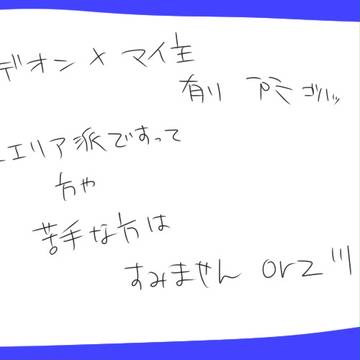 デオン × マイ主
有り
エリア派ですって
方や
苦手な方は
すみません orz